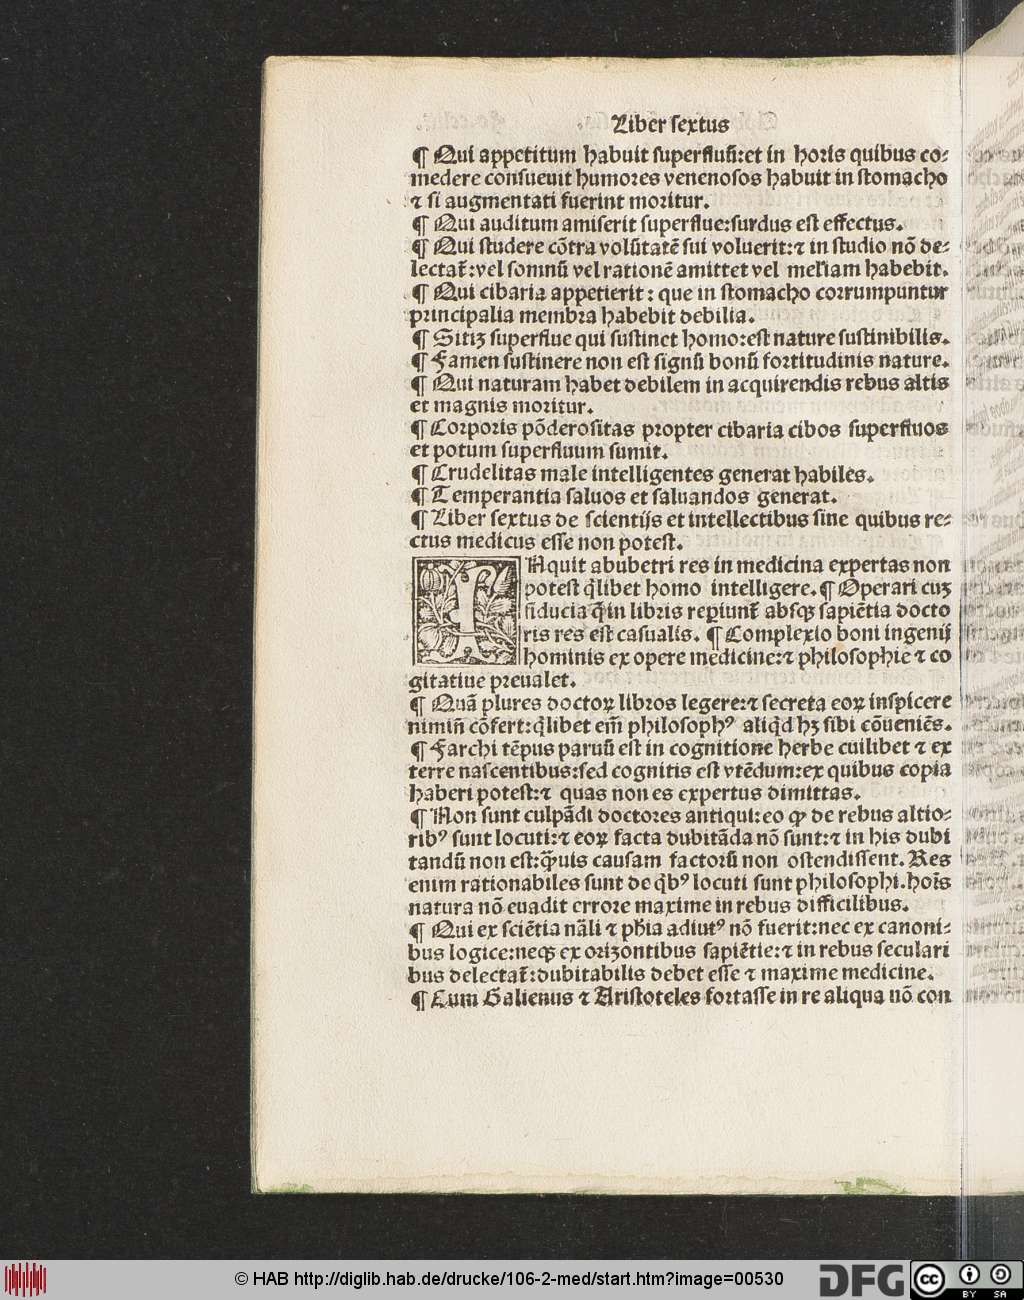 Liber sextus
¶ Qui appetitum habuit superfluũ:et in horis quibus co-
medere consueuit humores venenosos habuit in stomacho
⁊ si augmentati fuerint moritur.
¶ Qui auditum amiserit superflue:surdus est effectus.
¶ Qui studere cõtra volũtatẽ sui voluerit:⁊ in studio nõ de-
lectat̃:vel somnũ vel rationẽ amittet vel meliam habebit.
¶ Qui cibaria appetierit: que in stomacho corrumpuntur
principalia membra habebit debilia.
¶ Sitiꝫ superflue qui sustinet homo:est nature sustinibilis.
¶ Famen sustinere non est signũ bonũ fortitudinis nature.
¶ Qui naturam habet debilem in acquirendis rebus altis
et magnis moritur.
¶ Corporis põderositas propter cibaria cibos superfluos
et potum superfluum sumit.
¶ Crudelitas male intelligentes generat habiles.
¶ Temperantia saluos et saluandos generat.
¶ Liber sextus de scientijs et intellectibus sine quibus re-
ctus medicus esse non potest.
IAquit abubetri res in medicina expertas non
potest q̃libet homo intelligere. ¶ Operari cuꝫ
fiducia q̃ in libris reperiunt̃ absqꝫ sapiẽtia docto
ris res est casualis. ¶ Complexio boni ingenij
hominis ex opere medicine:⁊ philosophie ⁊ co
gitatiue preualet.
¶ Quã plures doctoꝝ libros legere:⁊ secreta eoꝝ inspicere
nimiñ cõfert:q̃libet em̃ philosophꝰ aliq̃d hꝫ sibi cõueniẽs.
¶ Farchi tẽpus paruũ est in cognitione herbe cuilibet ⁊ ex
terre nascentibus:sed cognitis est vtẽdum:ex quibus copia
haberi potest:⁊ quas non es expertus dimittas.
¶ Non sunt culpãdi doctores antiqui:eo ꝙ de rebus altio-
ribꝰ sunt locuti:⁊ eoꝝ facta dubitãda nõ sunt:⁊ in his dubi
tandũ non est:q̃uis causam factorũ non ostendissent. Res
enim rationabiles sunt de q̃bꝰ locuti sunt philosophi.hoĩs
natura nõ euadit errore maxime in rebus difficilibus.
¶ Qui ex sciẽtia nãli ⁊ ph̃ia adiutꝰ nõ fuerit:nec ex canoni-
bus logice:neqꝫ ex orizontibus sapiẽtie:⁊ in rebus seculari
bus delectat̃:dubitabilis debet esse ⁊ maxime medicine.
¶ Cum Galienus ⁊ Aristoteles fortasse in re aliqua nõ con
© HAB http://diglib.hab.de/drucke/106-2-med/start.htm?image=00530
DFG
cc BY SA